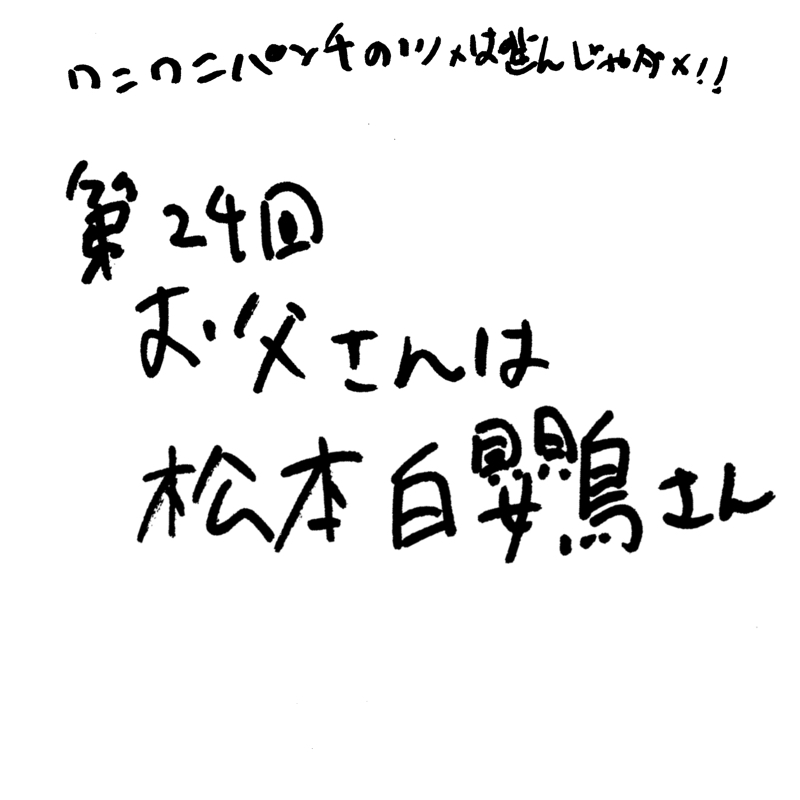 ワニワニパンチのツメは噛んじゃダメ!!
第24回
お父さんは
松本白鸚さん